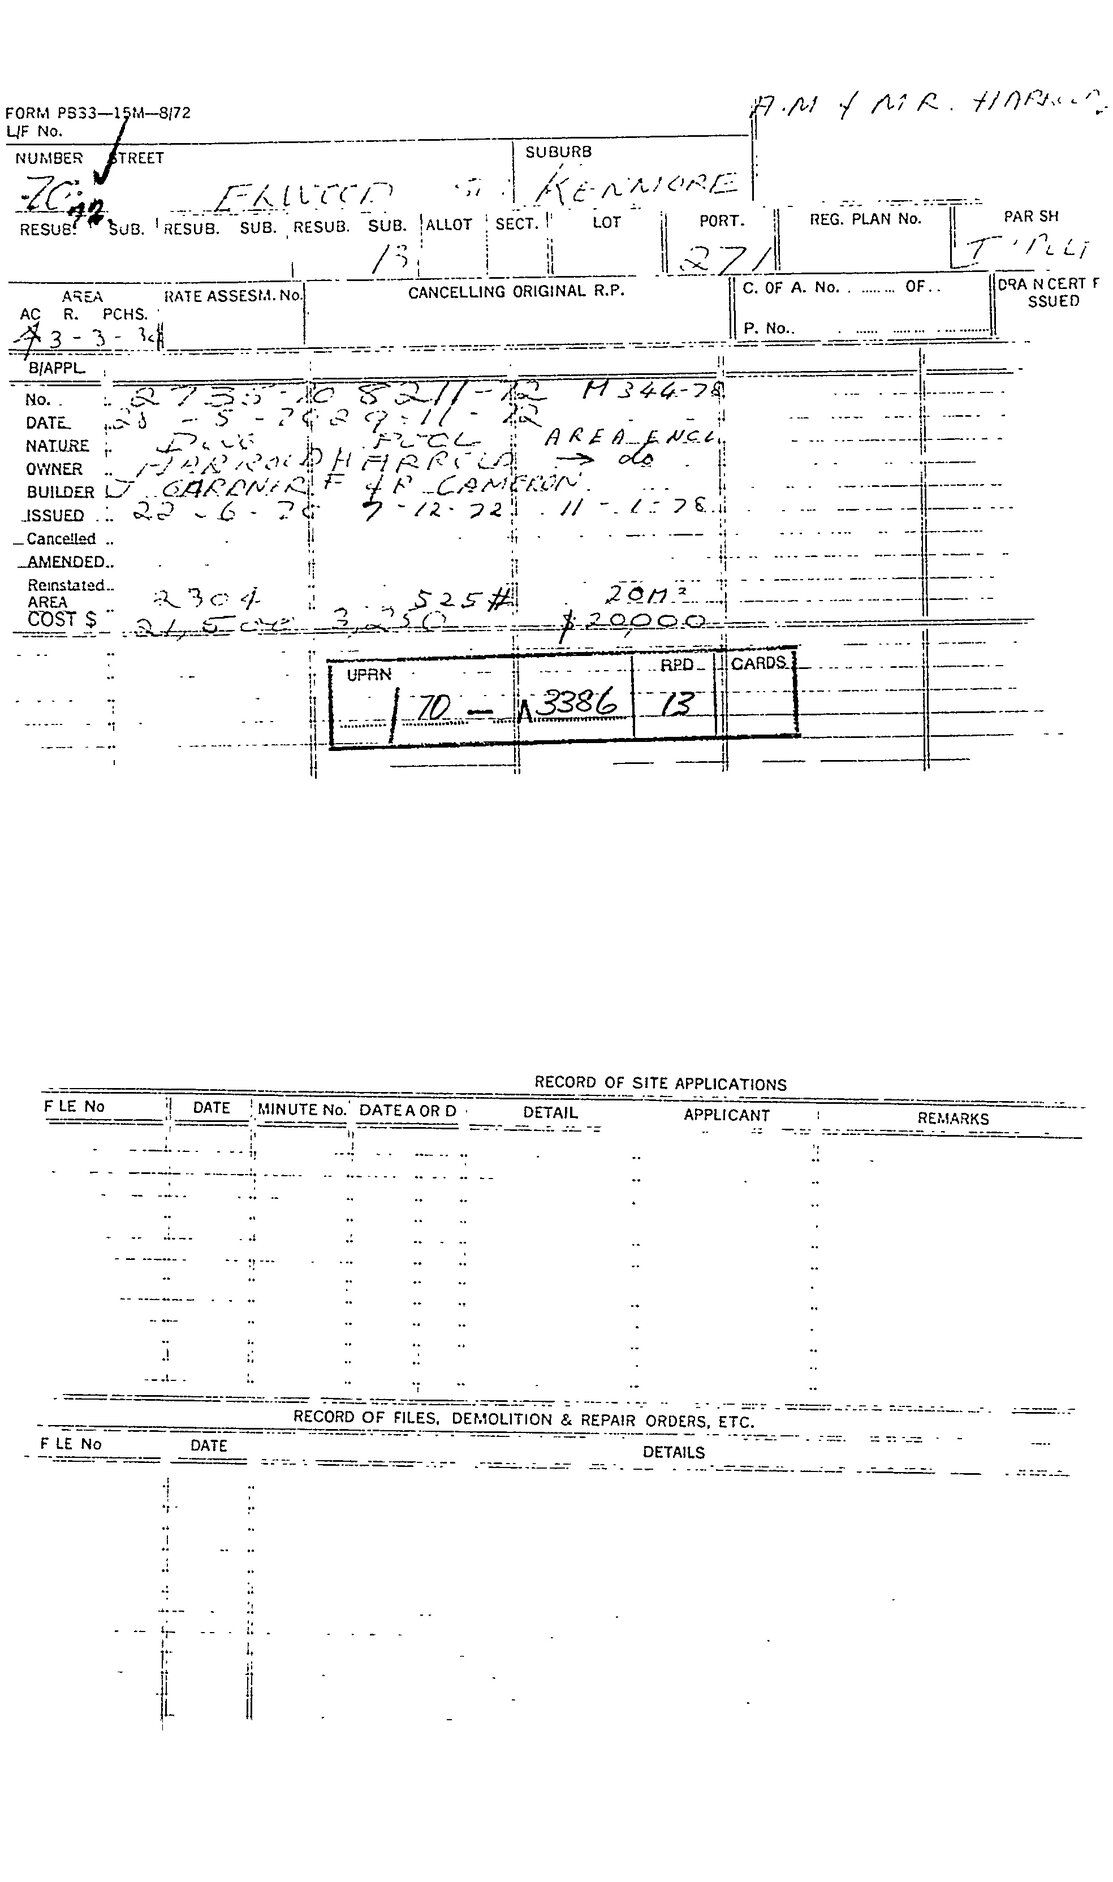 FORM PBS3—15M—8/72
A.M & M.R.
L/F No.
NUMBER STREET SUBURB
70 72 KENMORE
RESUB. SUB. RESUB. SUB. RESUB. SUB. ALLOT SECT. LOT PORT. REG. PLAN No. PAR SH
13 271
AREA RATE ASSESM. No. CANCELLING ORIGINAL R.P. C. OF A. No. OF DRA N CERT F
AC R. PCHS. SSUED
3 - 3 - P. No.
B/APPL
No. 2735-70 8211-72 M 344-78
DATE 28 - 5 - 70 29-11-72
NATURE POOL AREA ENCL
OWNER HARROLD HARROLD → do
BUILDER J GARDNER F & P CAMERON
ISSUED 22-6-70 7-12-72 11-1-78
Cancelled
AMENDED
Reinstated
AREA 2304 525# 20M²
COST $ 21,500 3,250 $20,000
UPRN RPD CARDS
/ 70 — 3386 13
RECORD OF SITE APPLICATIONS
F LE No DATE MINUTE No. DATE A OR D DETAIL APPLICANT REMARKS
RECORD OF FILES, DEMOLITION & REPAIR ORDERS, ETC.
F LE No DATE DETAILS